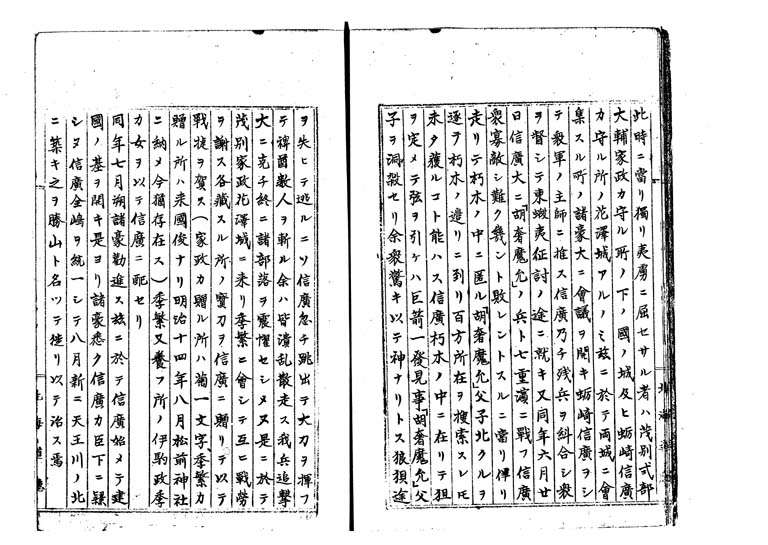 此時ニ當リ獨リ夷虜ニ屈セサル者ハ茂別式部
大輔家政カ守ル所ノ下ノ國ノ城及ヒ蛎崎信廣
カ守ル所ノ花澤城アルノミ玆ニ於テ両城ニ會
集スル所ノ諸豪大ニ會議ヲ開キ蛎崎信廣ヲシ
テ衆軍ノ主師ニ推ス信廣乃チ残兵ヲ糾合シ衆
ヲ督シテ東蝦夷征討ノ途ニ就キ又同年六月廿
日信廣大ニ「胡奢魔允」ノ兵ト七重濱ニ戰フ信廣
衆寡敵シ難ク幾ント敗レントスルニ當リ佯リ
走リテ朽木ノ中ニ匿ル胡奢魔允」父子北クルヲ
逐ヲ朽木ノ邉リニ到リ百方所在ヲ捜索スレ𪜈
未タ獲ルコト能ハス信廣朽木ノ中ニ在リテ狙
ヲ定メテ弦ヲ引ケハ巨箭一發見事「胡奢魔允」父
子ヲ洞殺セリ余衆驚キ以テ神ナリトス狼狽途
ヲ失ヒテ逃ルニソ信廣忽チ跳出テ大刀ヲ揮フ
テ裨酋數人ヲ斬ル余ハ皆潰乱散走ス我兵追撃
大ニ克チ終ニ諸部落ヲ震懼セシメヌ是ニ於テ
茂別家政花澤城ニ来リ季繁ニ會シテ互ニ戰勞
ヲ謝ス各藏スル所ノ寳刀ヲ信廣ニ贈リテ以テ
戰捷ヲ賀ス（家政カ贈ル所ハ菊一文字季繁カ
贈ル所ハ来國俊ナリ明治十四年八月松前神社
ニ納メ今猶存在ス）季繁又養フ所ノ伊駒政季
カ女ヲ以テ信廣ニ配セリ
同年七月朔諸豪勧進ス玆ニ於テ信廣始メテ建
國ノ基ヲ開キ是ヨリ諸豪悉ク信廣カ臣下ニ隷
シヌ信廣全嶋ヲ統一シテ八月新ニ天王川ノ北
ニ築キ之ヲ勝山ト名ツテ徙リ以テ治ス焉